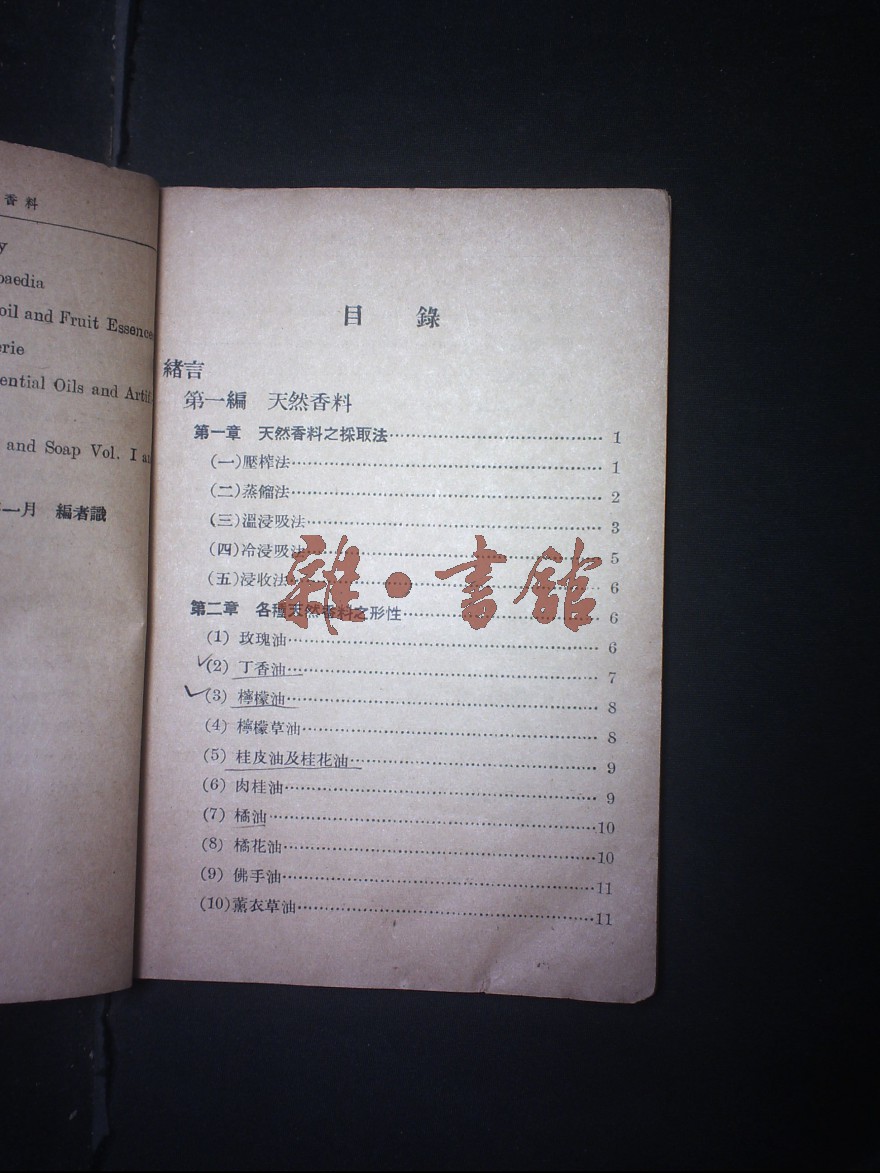 香料
y
paedia
oil and Fruit Essence
erie
ential Oils and Artif
and Soap Vol. I a
一月 編者識
目 錄
緒言
第一編 天然香料
第一章 天然香料之採取法 1
(一)壓榨法 1
(二)蒸餾法 2
(三)溫浸吸法 3
(四)冷浸吸法 5
(五)浸收法 6
第二章 各種天然香料之形性 6
(1) 玫瑰油 6
(2) 丁香油 7
(3) 檸檬油 8
(4) 檸檬草油 8
(5) 桂皮油及桂花油 9
(6) 肉桂油 9
(7) 橘油 10
(8) 橘花油 10
(9) 佛手油 11
(10)薰衣草油 11
雜·書館